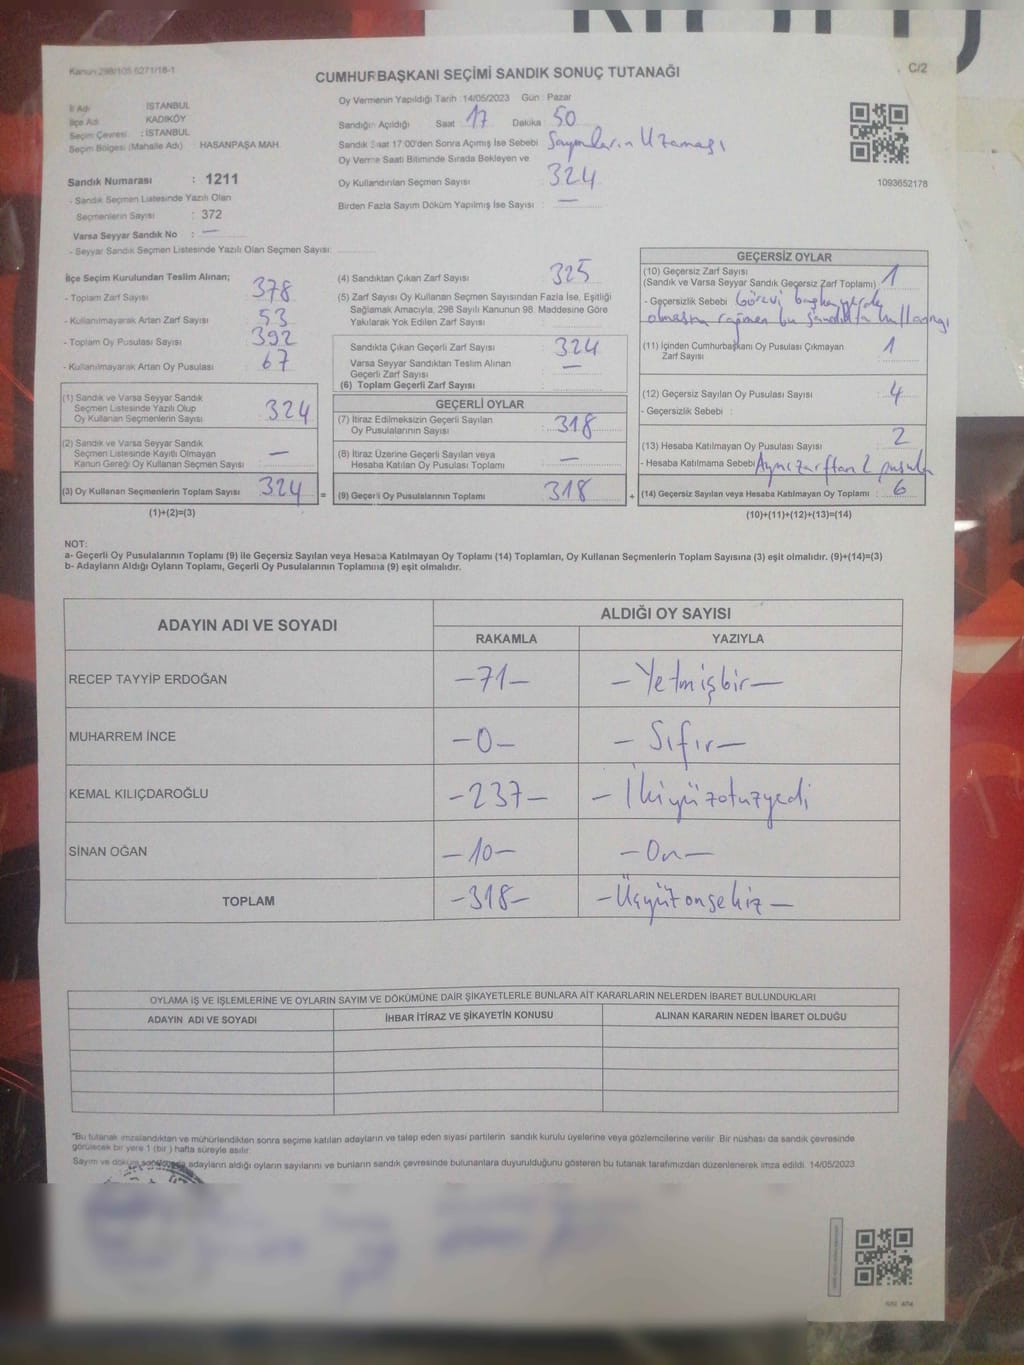 Kanun 298/105 6271/18-1
CUMHURBAŞKANI SEÇİMİ SANDIK SONUÇ TUTANAĞI
C/2
İl Adı : İSTANBUL
İlçe Adı : KADIKÖY
Seçim Çevresi : İSTANBUL
Seçim Bölgesi (Mahalle Adı) HASANPAŞA MAH.
Sandık Numarası : 1211
- Sandık Seçmen Listesinde Yazılı Olan
Seçmenlerin Sayısı : 372
Varsa Seyyar Sandık No : —
- Seyyar Sandık Seçmen Listesinde Yazılı Olan Seçmen Sayısı:
Oy Vermenin Yapıldığı Tarih : 14/05/2023 Gün : Pazar
Sandığın Açıldığı Saat 17 Dakika 50
Sandık Saat 17:00'den Sonra Açılmış İse Sebebi Sayımların Uzaması
Oy Verme Saati Bitiminde Sırada Bekleyen ve
Oy Kullandırılan Seçmen Sayısı : 324
Birden Fazla Sayım Döküm Yapılmış İse Sayısı : —
1093652178
İlçe Seçim Kurulundan Teslim Alınan;
- Toplam Zarf Sayısı : 378
- Kullanılmayarak Artan Zarf Sayısı : 53
- Toplam Oy Pusulası Sayısı : 392
- Kullanılmayarak Artan Oy Pusulası : 67
(1) Sandık ve Varsa Seyyar Sandık
Seçmen Listesinde Yazılı Olup
Oy Kullanan Seçmenlerin Sayısı : 324
(2) Sandık ve Varsa Seyyar Sandık
Seçmen Listesinde Kayıtlı Olmayan
Kanun Gereği Oy Kullanan Seçmen Sayısı : —
(3) Oy Kullanan Seçmenlerin Toplam Sayısı : 324 =
(1)+(2)=(3)
(4) Sandıktan Çıkan Zarf Sayısı : 325
(5) Zarf Sayısı Oy Kullanan Seçmen Sayısından Fazla İse, Eşitliği
Sağlamak Amacıyla, 298 Sayılı Kanunun 98. Maddesine Göre
Yakılarak Yok Edilen Zarf Sayısı :
Sandıkta Çıkan Geçerli Zarf Sayısı : 324
Varsa Seyyar Sandıktan Teslim Alınan
Geçerli Zarf Sayısı : —
(6) Toplam Geçerli Zarf Sayısı :
GEÇERLİ OYLAR
(7) İtiraz Edilmeksizin Geçerli Sayılan
Oy Pusulalarının Sayısı : 318
(8) İtiraz Üzerine Geçerli Sayılan veya
Hesaba Katılan Oy Pusulası Toplamı : —
(9) Geçerli Oy Pusulalarının Toplamı : 318 +
GEÇERSİZ OYLAR
(10) Geçersiz Zarf Sayısı
(Sandık ve Varsa Seyyar Sandık Geçersiz Zarf Toplamı) : 1
- Geçersizlik Sebebi : Görevi başka yerde
olmasına rağmen bu sandıkta kullandığı
(11) İçinden Cumhurbaşkanı Oy Pusulası Çıkmayan
Zarf Sayısı : 1
(12) Geçersiz Sayılan Oy Pusulası Sayısı : 4
- Geçersizlik Sebebi :
(13) Hesaba Katılmayan Oy Pusulası Sayısı : 2
- Hesaba Katılmama Sebebi Aynı zarftan 2 pusula
(14) Geçersiz Sayılan veya Hesaba Katılmayan Oy Toplamı : 6
(10)+(11)+(12)+(13)=(14)
NOT:
a- Geçerli Oy Pusulalarının Toplamı (9) ile Geçersiz Sayılan veya Hesaba Katılmayan Oy Toplamı (14) Toplamları, Oy Kullanan Seçmenlerin Toplam Sayısına (3) eşit olmalıdır. (9)+(14)=(3)
b- Adayların Aldığı Oyların Toplamı, Geçerli Oy Pusulalarının Toplamına (9) eşit olmalıdır.
ADAYIN ADI VE SOYADI
ALDIĞI OY SAYISI
RAKAMLA YAZIYLA
RECEP TAYYİP ERDOĞAN —71— —Yetmişbir—
MUHARREM İNCE —0— —Sıfır—
KEMAL KILIÇDAROĞLU —237— —İkiyüzotuzyedi
SİNAN OĞAN —10— —On—
TOPLAM —318— —Üçyüzonsekiz—
OYLAMA İŞ VE İŞLEMLERİNE VE OYLARIN SAYIM VE DÖKÜMÜNE DAİR ŞİKAYETLERLE BUNLARA AİT KARARLARIN NELERDEN İBARET BULUNDUKLARI
ADAYIN ADI VE SOYADI İHBAR İTİRAZ VE ŞİKAYETİN KONUSU ALINAN KARARIN NEDEN İBARET OLDUĞU
"Bu tutanak imzalandıktan ve mühürlendikten sonra seçime katılan adayların ve talep eden siyasi partilerin sandık kurulu üyelerine veya gözlemcilerine verilir. Bir nüshası da sandık çevresinde
görülecek bir yere 1 (bir) hafta süreyle asılır.
Sayım ve döküm adayların aldığı oyların sayılarını ve bunların sandık çevresinde bulunanlara duyurulduğunu gösteren bu tutanak tarafımızdan düzenlenerek imza edildi. 14/05/2023